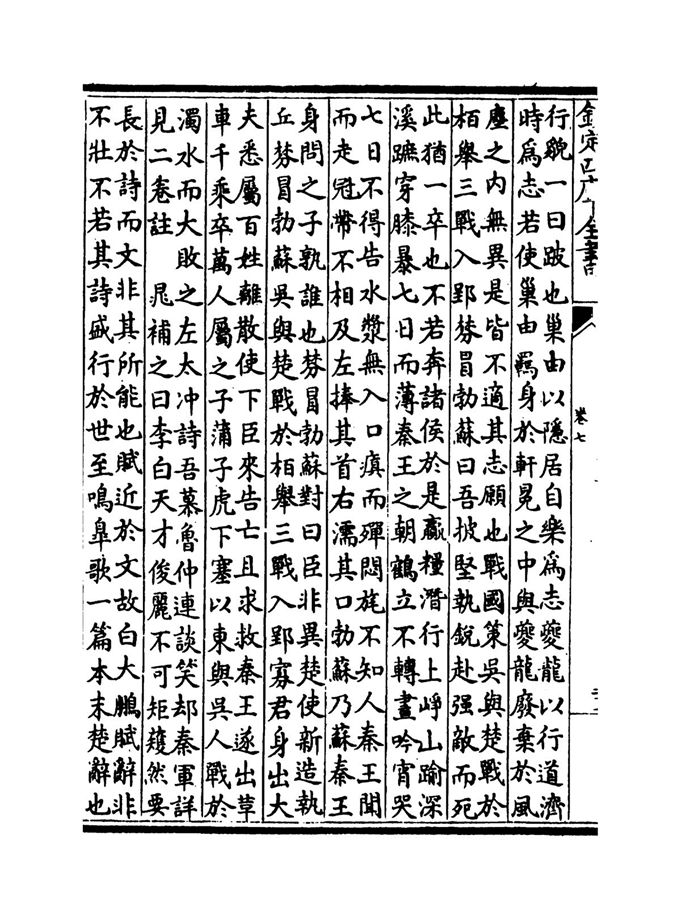 欽定四庫全書
卷七
行貌一曰跛也巢由以隱居自樂為志夔龍以行道濟
時為志若使巢由羇身於軒冕之中與夔龍廢棄於風
塵之内無異是皆不適其志願也戰國策吳與楚戰於
栢舉三戰入郢棼冒勃蘇曰吾披堅執銳赴强敵而死
此猶一卒也不若奔諸侯於是贏糧潛行上崢山踰深
溪蹠穿膝暴七日而薄秦王之朝鶴立不轉晝吟宵哭
七日不得告水漿無入口瘨而殫悶旄不知人秦王聞
而走冠帶不相及左捧其首右濡其口勃蘇乃蘇秦王
身問之子孰誰也棼冒勃蘇對曰臣非異楚使新造執
丘棼冒勃蘇吳與楚戰於栢舉三戰入郢寡君身出大
夫悉屬百姓離散使下臣來告亡且求救秦王遂出草
車千乘卒萬人屬之子蒲子虎下塞以東與吳人戰於
濁水而大敗之左太冲詩吾慕魯仲連談笑却秦軍詳
見二卷註 晁補之曰李白天才俊麗不可矩矱然要
長於詩而文非其所能也賦近於文故白大鵬賦辭非
不壯不若其詩盛行於世至鳴臯歌一篇本末楚辭也